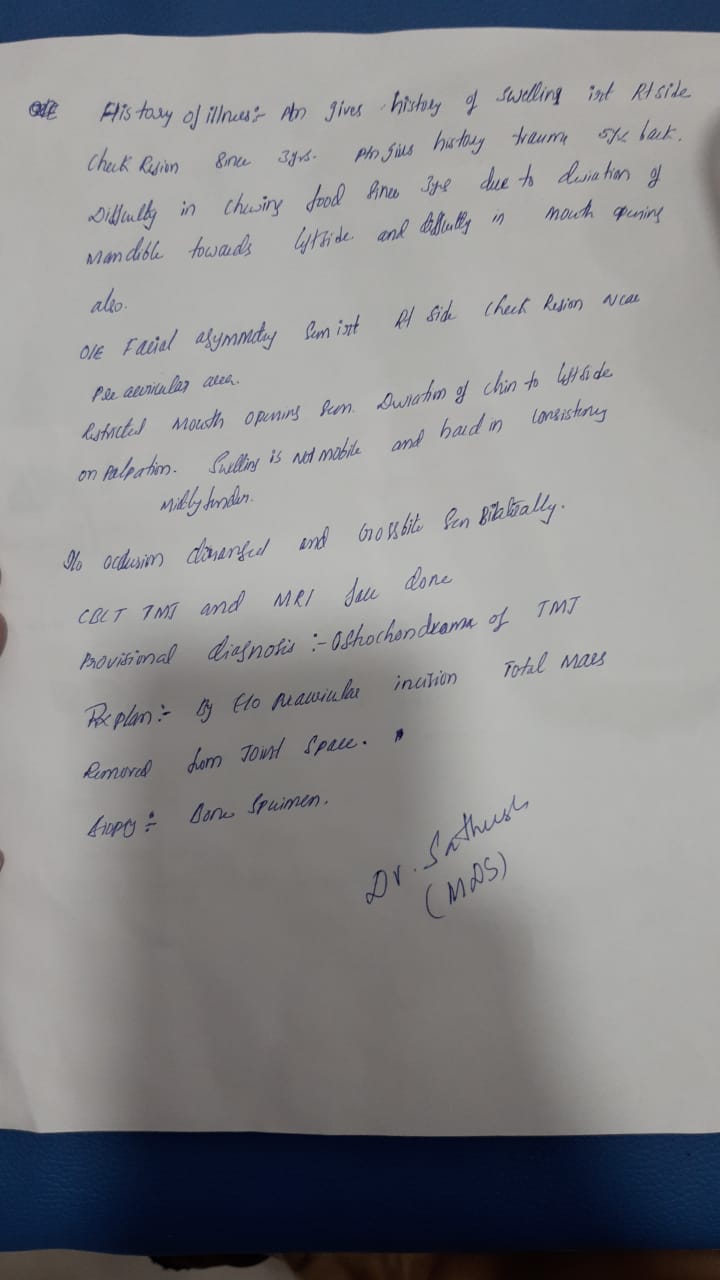 O/E History of illness:- Ptn gives history of swelling irt Rt side
Cheek Region Since 3yrs. Ptn gives history trauma 5yr back.
Difficulty in chewing food Since 3yr due to deviation of
Mandible towards leftside and difficulty in mouth opening
also.
O/E Facial asymmetry Seen irt Rt side cheek Region near
Pre auricular area.
Restricted Mouth opening Seen. Deviation of chin to left side
on palpation. Swelling is not mobile and hard in consistency
Mildly tender.
I/o occlusion deranged and Crossbite Seen Bilaterally.
CBCT TMJ and MRI face done
Provisional diagnosis :- Osteochondroma of TMJ
Rx plan:- By E/o Preauricular incision Total Mass
Removed from Joint Space.
Biopsy :- Bone Specimen.
Dr. Sathush
(MDS)